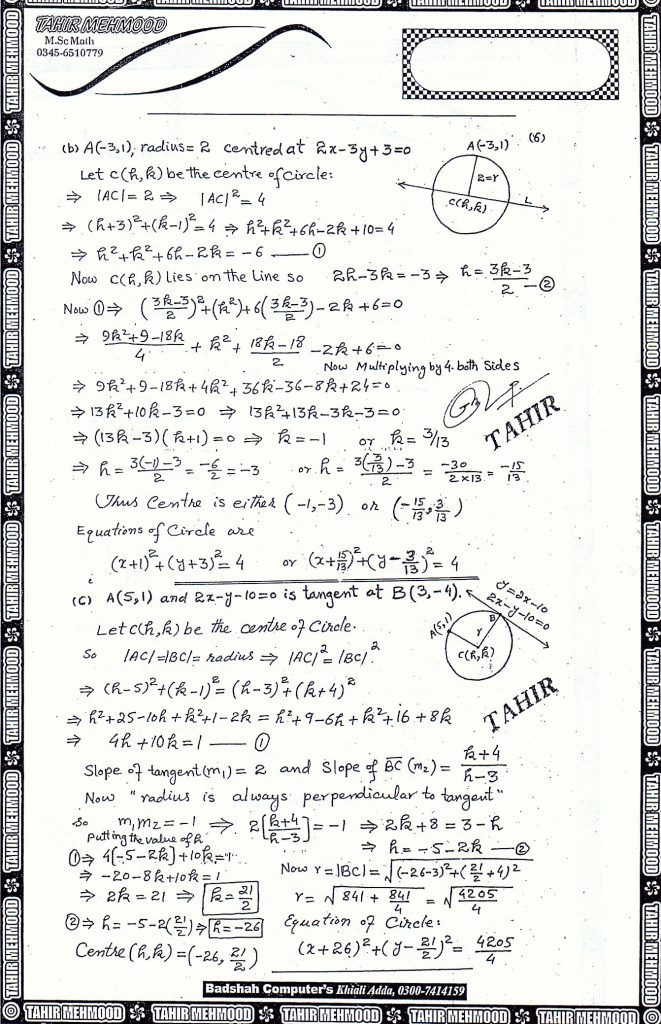 TAHIR MEHMOOD
M.Sc Math
0345-6510779
(6)
(b) A(-3,1), radius = 2 centred at 2x-3y+3=0
A(-3,1)
2=r
C(h,k)
L
Let c(h,k) be the centre of circle:
⇒ |AC| = 2 ⇒ |AC|² = 4
⇒ (h+3)²+(k-1)²=4 ⇒ h²+k²+6h-2k+10=4
⇒ h²+k²+6h-2k = -6 — ①
Now c(h,k) lies on the Line so 2h-3k = -3 ⇒ h = (3k-3)/2 — ②
Now ① ⇒ ((3k-3)/2)²+(k²)+6((3k-3)/2)-2k+6=0
⇒ (9k²+9-18k)/4 + k² + (18k-18)/2 -2k+6=0
Now Multiplying by 4. both Sides
⇒ 9k²+9-18k+4k²+36k-36-8k+24=0
⇒ 13k²+10k-3=0 ⇒ 13k²+13k-3k-3=0
⇒ (13k-3)(k+1)=0 ⇒ k=-1 or k=3/13
TAHIR
⇒ h = (3(-1)-3)/2 = -6/2 = -3 or h = (3(3/13)-3)/2 = -30/(2×13) = -15/13
Thus Centre is either (-1,-3) or (-15/13, 3/13)
Equations of Circle are
(x+1)²+(y+3)²=4 or (x+15/13)²+(y-3/13)² = 4
(c) A(5,1) and 2x-y-10=0 is tangent at B(3,-4).
y=2x-10
2x-y-10=0
A(5,1)
B
r
C(h,k)
Let c(h,k) be the centre of Circle.
So |AC|=|BC|= radius ⇒ |AC|² = |BC|²
⇒ (h-5)²+(k-1)² = (h-3)²+(k+4)²
⇒ h²+25-10h+k²+1-2k = h²+9-6h+k²+16+8k
TAHIR
⇒ 4h+10k=1 — ①
Slope of tangent (m₁) = 2 and Slope of BC (m₂) = (k+4)/(h-3)
Now "radius is always perpendicular to tangent"
So m₁m₂ = -1 ⇒ 2[(k+4)/(h-3)] = -1 ⇒ 2k+8 = 3-h
Putting the value of h
⇒ h = -5-2k — ②
① ⇒ 4[-5-2k]+10k=1
Now r=|BC| = √((-26-3)²+(21/2+4)²)
⇒ -20-8k+10k=1
⇒ 2k=21 ⇒ k=21/2
r = √(841 + 841/4) = √(4205/4)
② ⇒ h=-5-2(21/2) ⇒ h=-26
Equation of Circle:
Centre (h,k) = (-26, 21/2)
(x+26)²+(y-21/2)² = 4205/4
Badshah Computer's Khiali Adda, 0300-7414159
TAHIR MEHMOOD TAHIR MEHMOOD TAHIR MEHMOOD TAHIR MEHMOOD TAHIR MEHMOOD